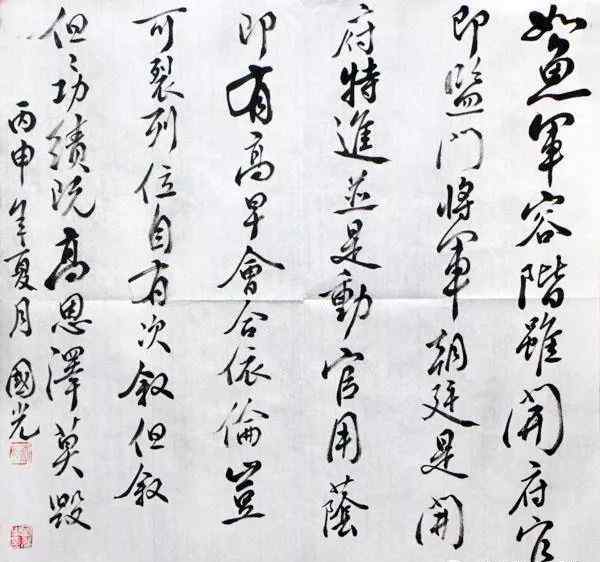 如魚軍容階雖開府官
即監门将軍朝廷是開
府特進並是動官用蔭
即有高早會合依倫豈
可裂列位自有次叙但叙
但々功績既高恩澤莫毀
丙申年夏月國光